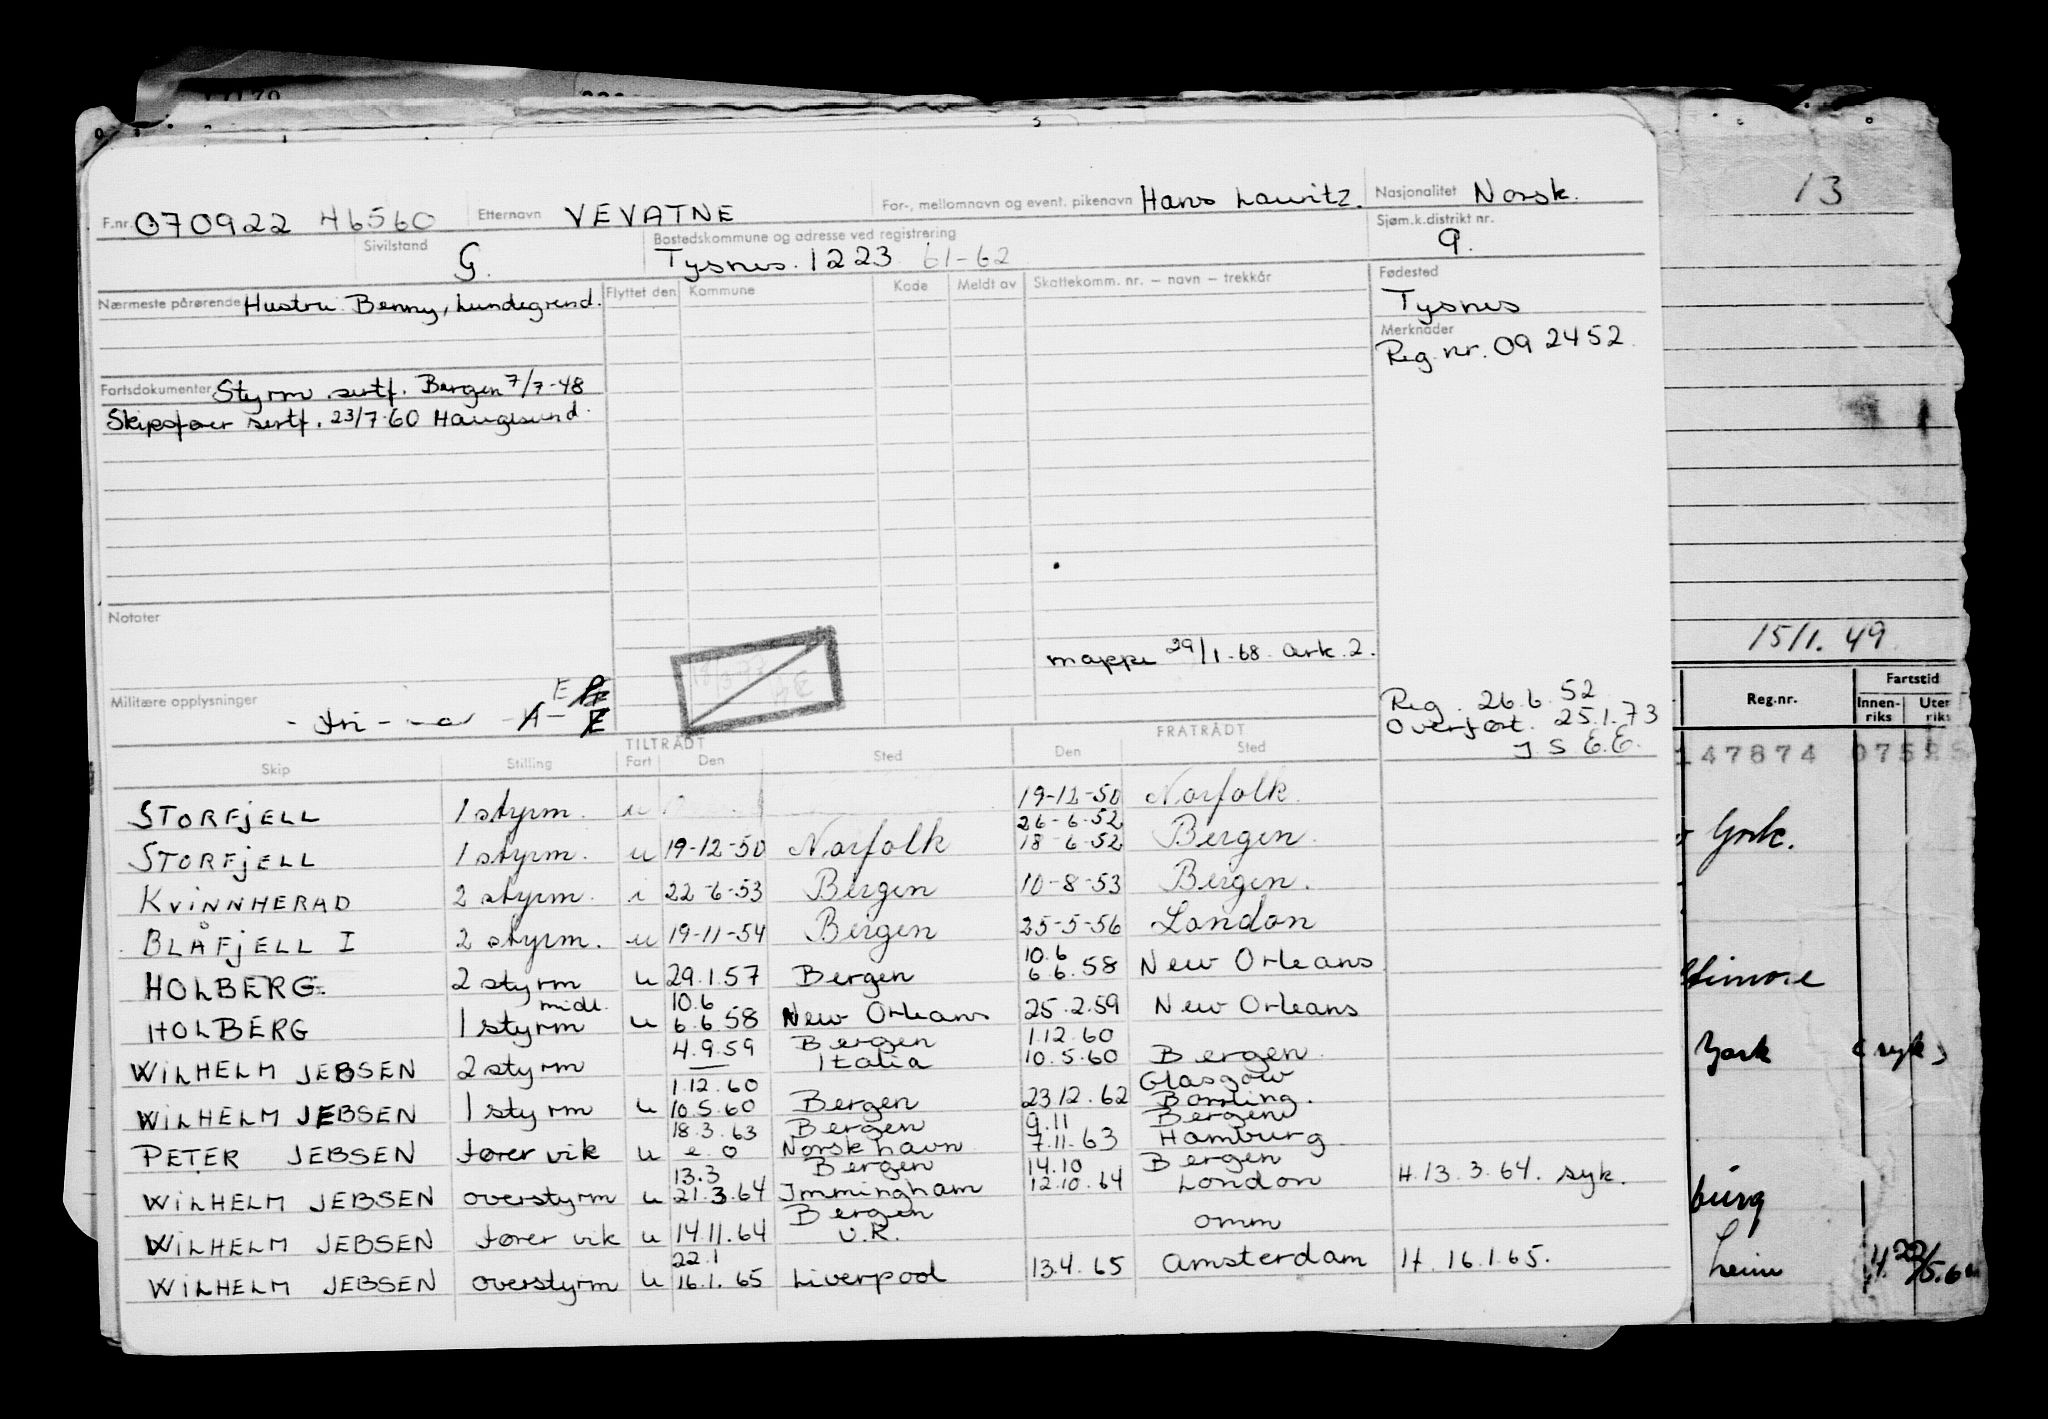 13
F.nr. 070922 46560 Etternavn VEVATNE For-, mellomnavn og event. pikenavn Hans Lauritz. Nasjonalitet Norsk.
Sivilstand G. Bostedskommune og adresse ved registrering Tysnes. 1223 61-62 Sjøm.k.distrikt nr. 9.
Nærmeste pårørende Hustru Benny, Lundegrend. Flyttet den Kommune Kode Meldt av Skattekomm. nr. – navn – trekkår Fødested
Tysnes
Merknader
Reg. nr. 092452.
Fartsdokumenter Styrm sertf. Bergen 7/7-48
Skipsfører sertf. 23/7-60 Haugesund.
Notater
mappe 29/1-68 ark. 2.
Militære opplysninger
Reg. 26.6.52
Overført. 25.1.73
J S E.E.
TILTRÅDT FRATRÅDT
Skip Stilling Fart Den Sted Den Sted
STORFJELL 1 styrm. u 19-12-50 Norfolk.
26-6-52
STORFJELL 1 styrm. u 19-12-50 Norfolk 18-6-52 Bergen.
KVINNHERAD 2 styrm. i 22-6-53 Bergen 10-8-53 Bergen.
BLÅFJELL I 2 styrm. u 19-11-54 Bergen 25-5-56 London
10.6
HOLBERG. 2 styrm u 29.1.57 Bergen 6.6.58 New Orleans
midl. 10.6
HOLBERG 1 styrm u 6.6.58 New Orleans 25.2.59 New Orleans
4.9.59 Bergen 1.12.60
WILHELM JEBSEN 2 styrm — Italia 10.5.60 Bergen.
1.12.60 Glasgow
WILHELM JEBSEN 1 styrm u 10.5.60 Bergen 23.12.62
18.3.63 Bergen 9.11 Bergen
PETER JEBSEN fører vik u e.o Norsk havn 7.11.63 Hamburg
13.3 Bergen 14.10 Bergen
WILHELM JEBSEN overstyrm u 21.3.64 Immingham 12.10.64 London H.13.3.64. syk.
Bergen
WILHELM JEBSEN fører vik u 14.11.64 U.R. omm
22.1
WILHELM JEBSEN overstyrm u 16.1.65 Liverpool 13.4.65 Amsterdam H. 16.1.65.
15/1.49
Reg.nr. Fartstid
Innen-riks Uten riks
147874
York.
York (syk)
burg